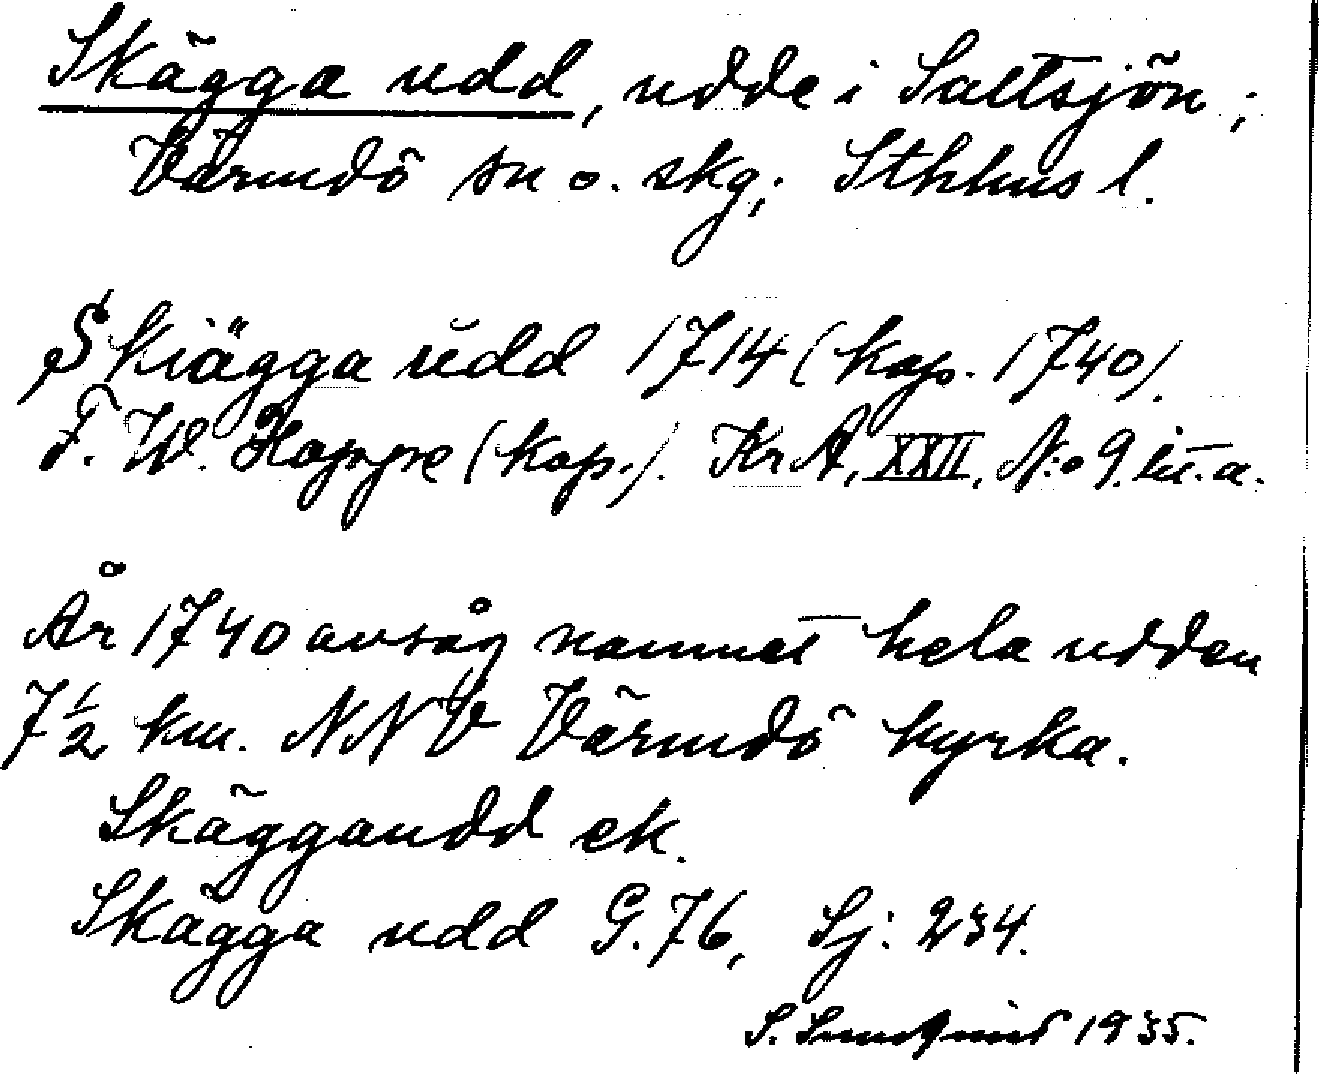 Skägga udd, udde i Saltsjön;
Värmdö sn o. skg; Sthlms l.
Skiägga üdd 1714 (kop. 1740).
F. W. Hoppe (kop.). KrA, XXII, N:o 9. lit. a.
År 1740 avsåg namnet hela udden
7 1/2 km. NNV Värmdö kyrka.
Skäggaudd ek.
Skägga udd G. 76, Sj: 234.
S. 1935.